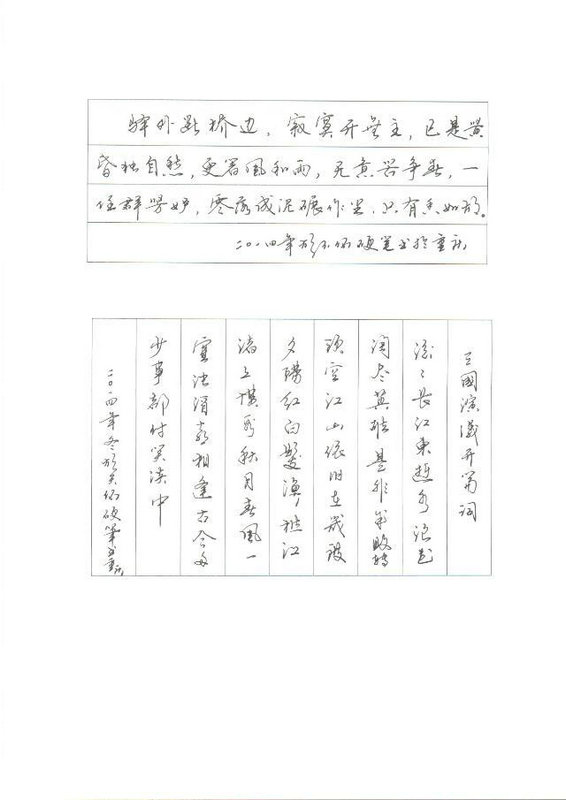 驿外断桥边，寂寞开無主，已是黄
昏独自愁，更着風和雨，无意苦争春，一
任群芳妒，零落成泥碾作尘，只有香如故。
二〇一四年硬笔书于重庆
三國演義开篇词
滚々长江東逝水浪花
淘尽英雄是非成敗转
頭空江山依旧在幾度
夕陽红白髮渔樵江
渚上慣看秋月春風一
壶浊酒喜相逢古今多
少事都付笑谈中
二〇一四年冬硬筆书重庆